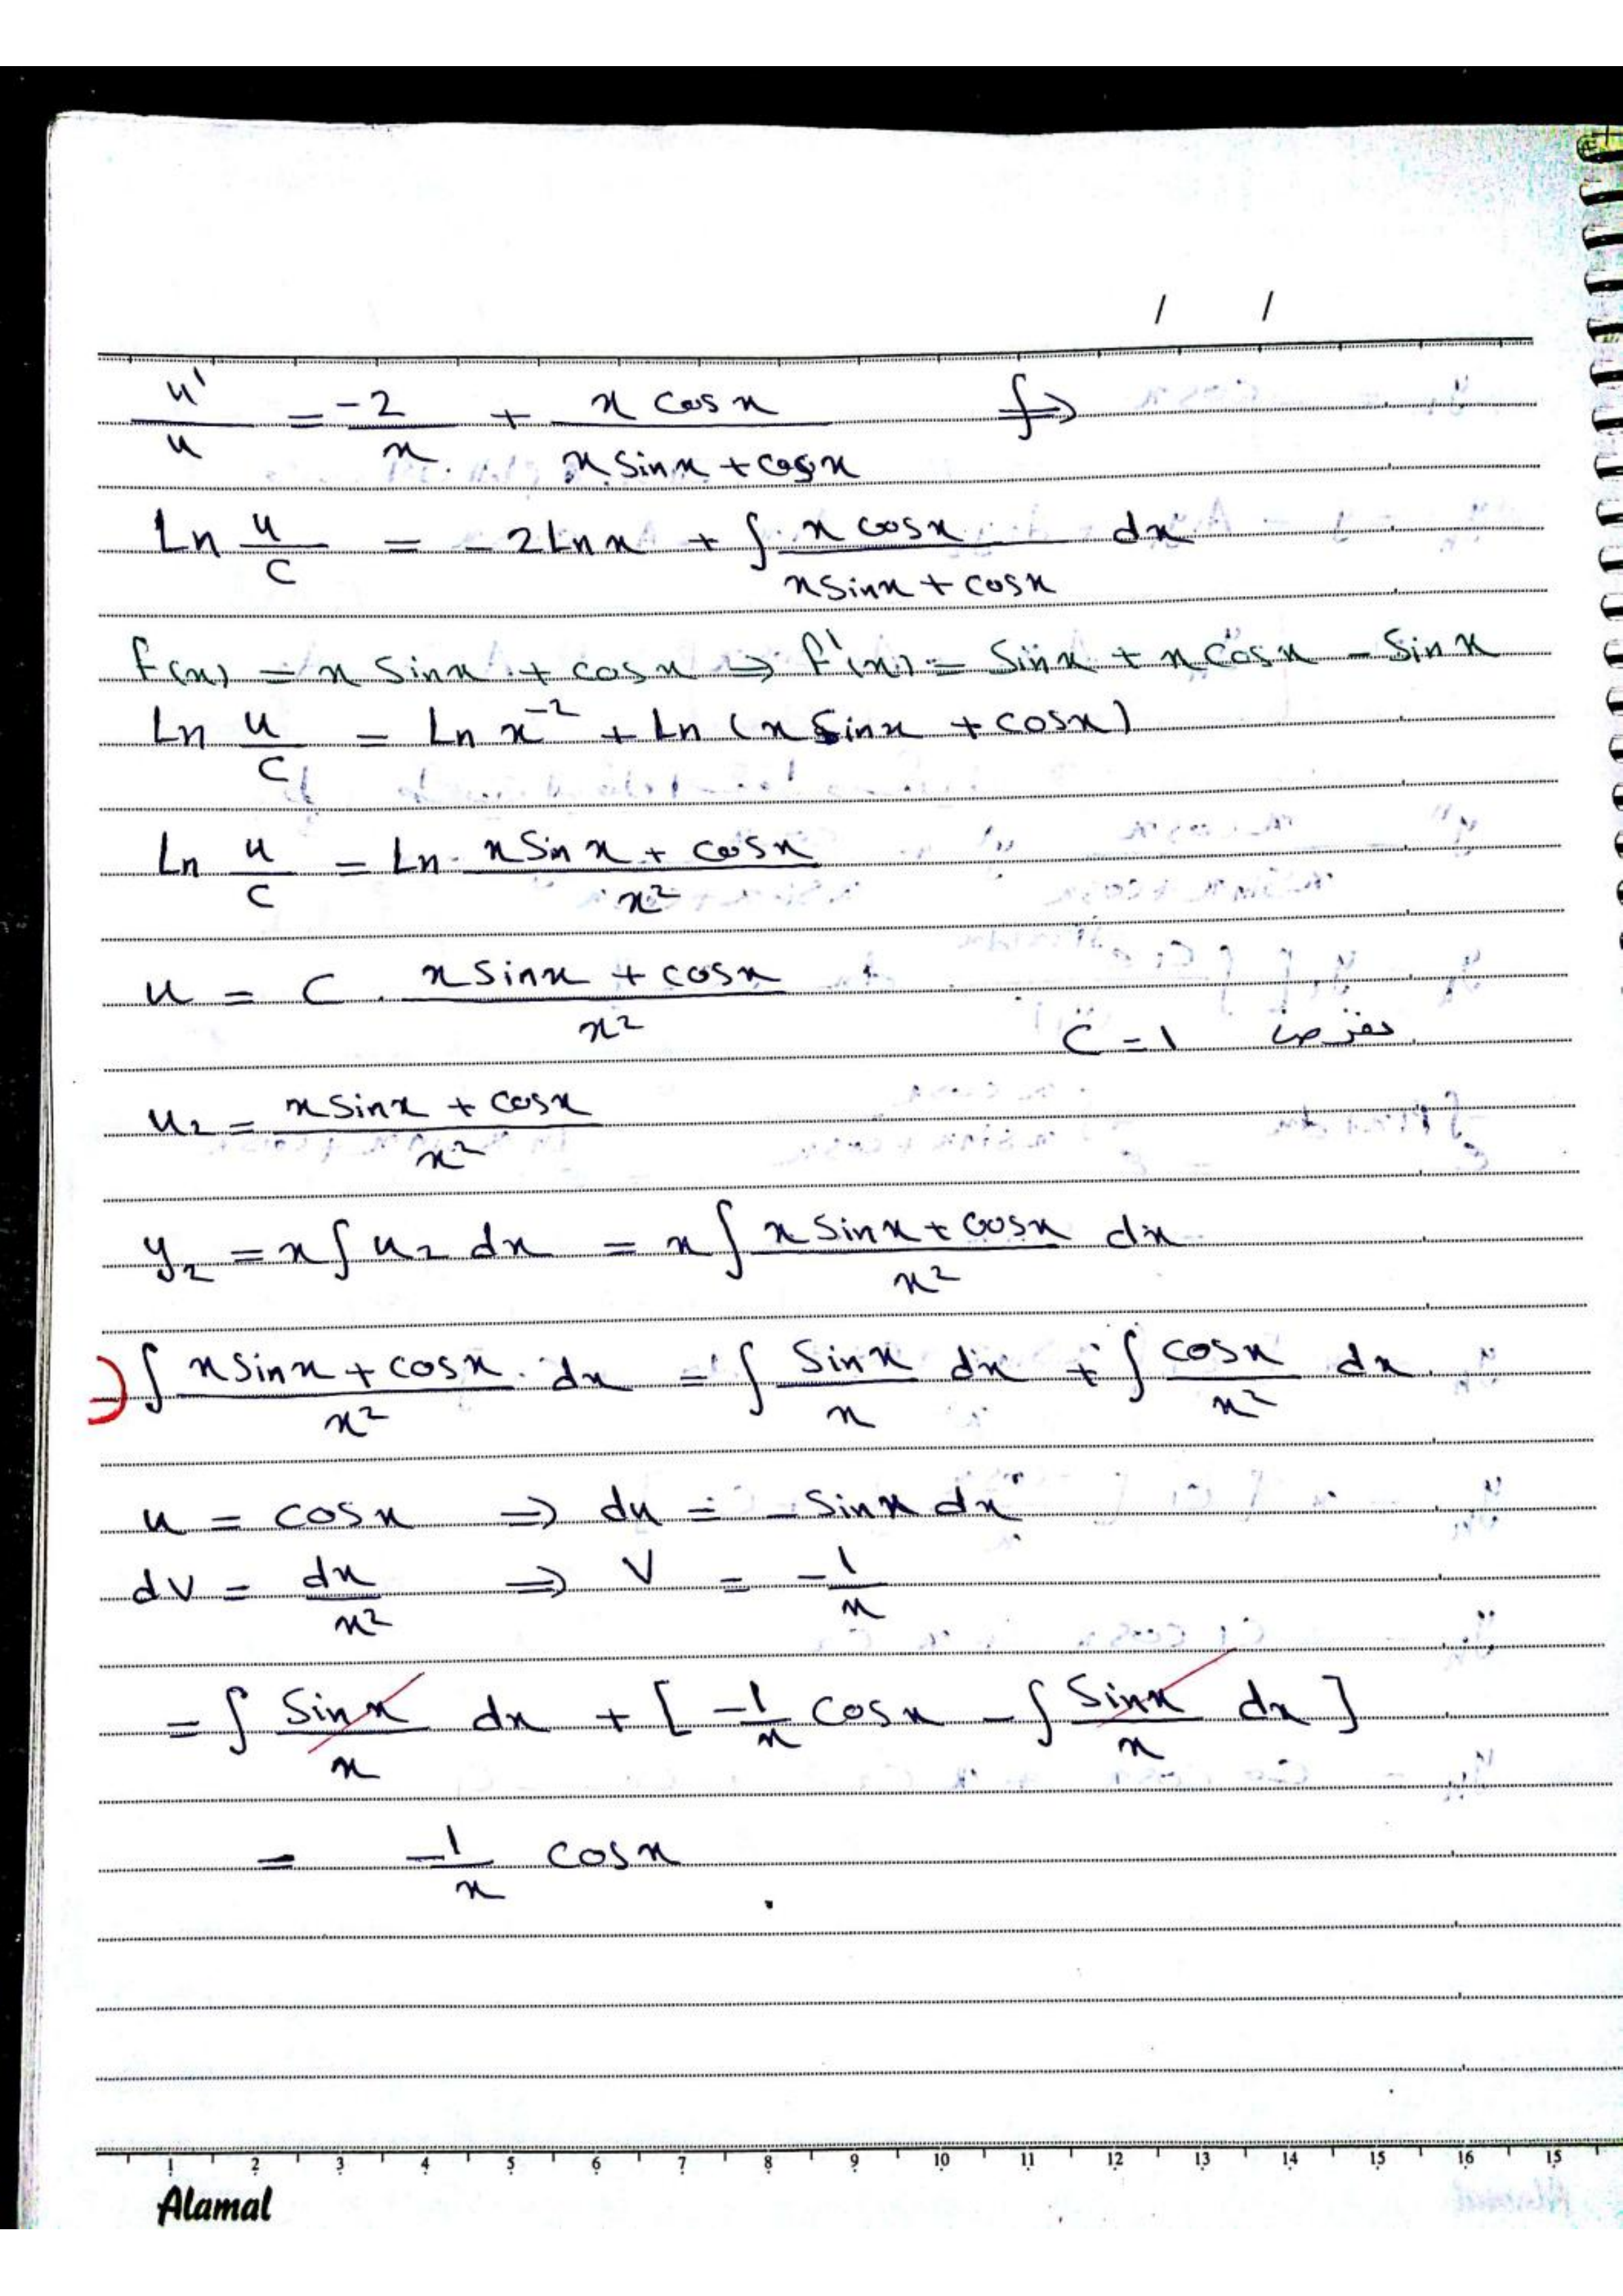 / /
u'/u = -2/x + x cosx/(x sinx + cosx) ∫⇒
Ln u/c = -2Lnx + ∫ x cosx/(x sinx + cosx) dx
f(x) = x sinx + cosx ⇒ f'(x) = sinx + x cosx - sinx
Ln u/c = Ln x⁻² + Ln (x sinx + cosx)
Ln u/c = Ln (x sinx + cosx)/x²
u = c . (x sinx + cosx)/x²
c = 1 نفرض
u₂ = (x sinx + cosx)/x²
y₂ = x ∫ u₂ dx = x ∫ (x sinx + cosx)/x² dx
⇒ ∫ (x sinx + cosx)/x² . dx = ∫ sinx/x dx + ∫ cosx/x² dx
u = cosx ⇒ du = - sinx dx
dv = dx/x² ⇒ v = -1/x
= ∫ sinx/x dx + [ -1/x cosx - ∫ sinx/x dx ]
= -1/x cosx .
1 2 3 4 5 6 7 8 9 10 11 12 13 14 15 16 15
Alamal